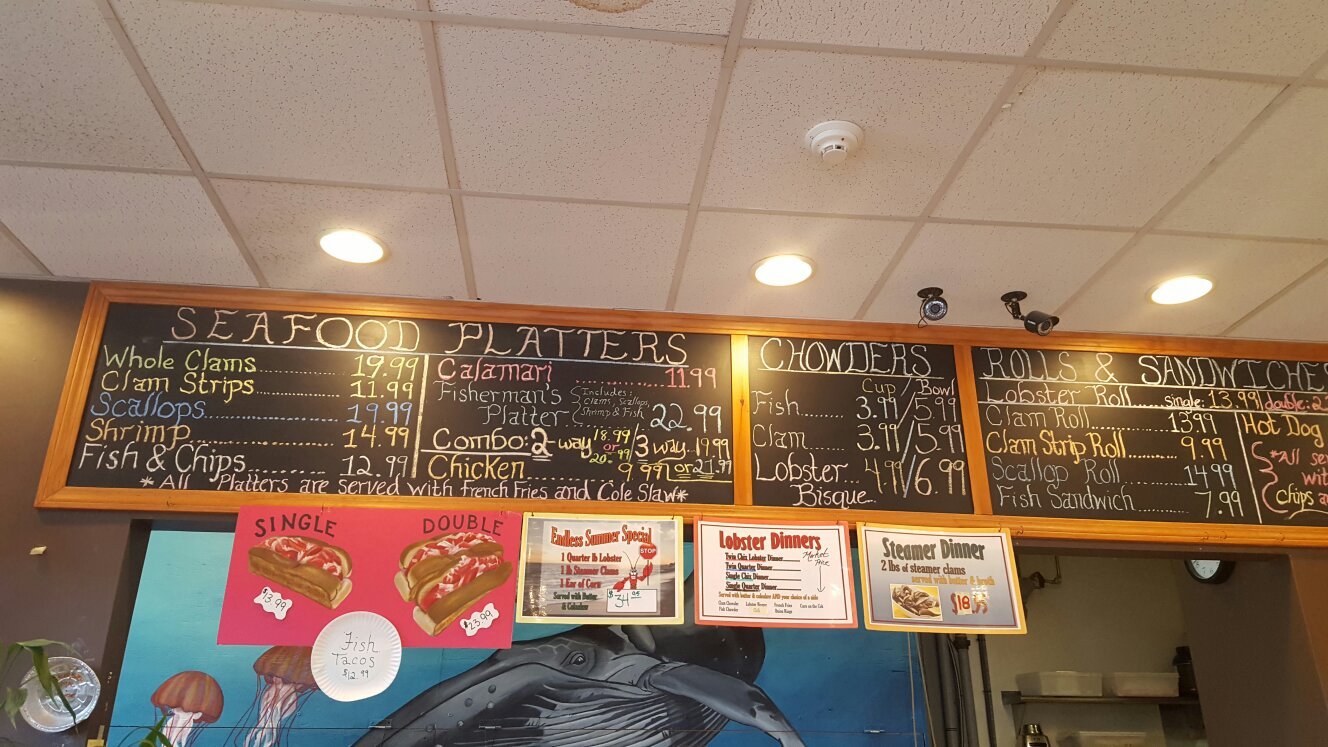 SEAFOOD PLATTERS
Whole Clams......... 19.99
Clam Strips......... 11.99
Scallops......... 19.99
Shrimp......... 14.99
Fish & Chips......... 12.99
Calamari......... 11.99
Fisherman's Platter Includes: Clams, Scallops, Shrimp & Fish 22.99
Combo: 2-way 18.99 or 20.99 / 3 way 19.99 or 21.99
Chicken......... 9.99
*All Platters are served with french fries and Cole Slaw*
CHOWDERS
Cup / Bowl
Fish....... 3.99/5.99
Clam....... 3.99/5.99
Lobster Bisque 4.99/6.99
ROLLS & SANDWICHE
Lobster Roll single: 13.99 double: 2
Clam Roll......... 13.99
Clam Strip Roll......... 9.99
Scallop Roll......... 14.99
Fish Sandwich......... 7.99
Hot Dog
*All ser
wit
Chips a
SINGLE
$13.99
DOUBLE
$23.99
Fish
Tacos
$12.99
Endless Summer Special
1 Quarter lb Lobster
1 lb Steamer Clams
1 Ear of Corn
Served with Butter
& Coleslaw
STOP
$34.95
Lobster Dinners
Twin Chix Lobster Dinner
Twin Quarter Dinner
Single Chix Dinner
Single Quarter Dinner
Market Price
Served with butter & coleslaw AND your choice of a side
Clam Chowder
Fish Chowder
Lobster Bisque
French Fries
Onion Rings
Corn on the Cob
Steamer Dinner
2 lbs of steamer clams
served with butter & broth
$18.95